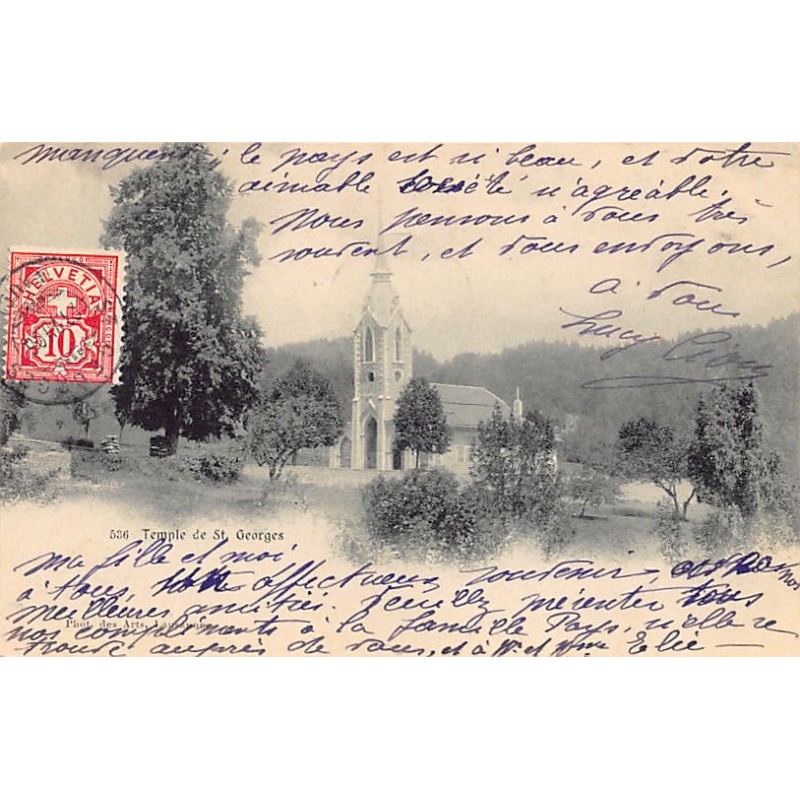 manquent ; le pays est si beau, et votre
aimable société n'agréable.
Nous pensons à vous très
souvent, et vous envoyons,
à vous
Lucy
HELVETIA
10
536 Temple de St. Georges
ma fille et moi
à tous, affectueux souvenir, et nos
meilleures amitiés. Veuillez présenter tous
Phot. des Arts, Lausanne
nos compliments à la famille Pays, si elle se
trouve auprès de vous, et à Mr et Mme Elie —